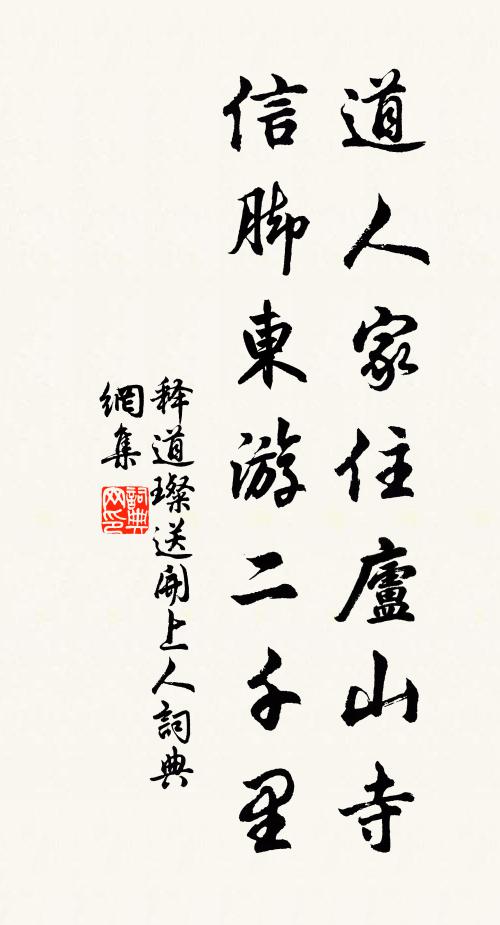 道人家住廬山寺
信脚東游二千里
释道璨送開上人詞典
網集
詞典网印